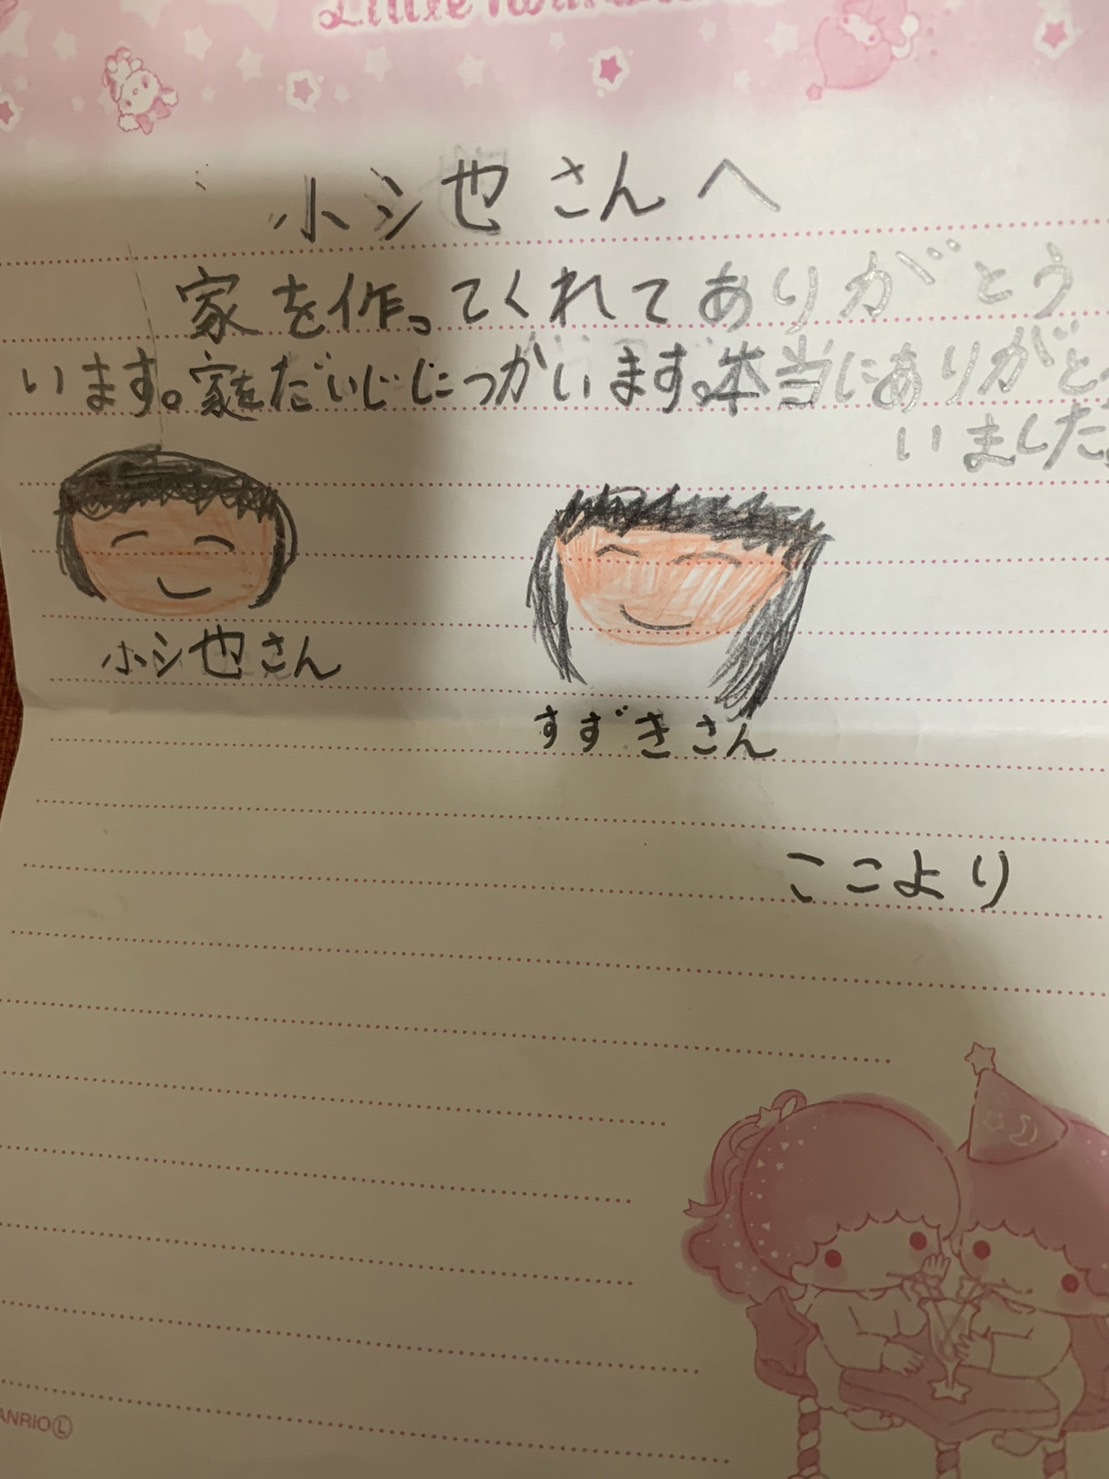 Little Twin
小シ也さんへ
家を作ってくれてありがとう
います。家をだいじにつかいます。本当にありがと
いました
小シ也さん
すずきさん
ここより
ANRIO Ⓛ